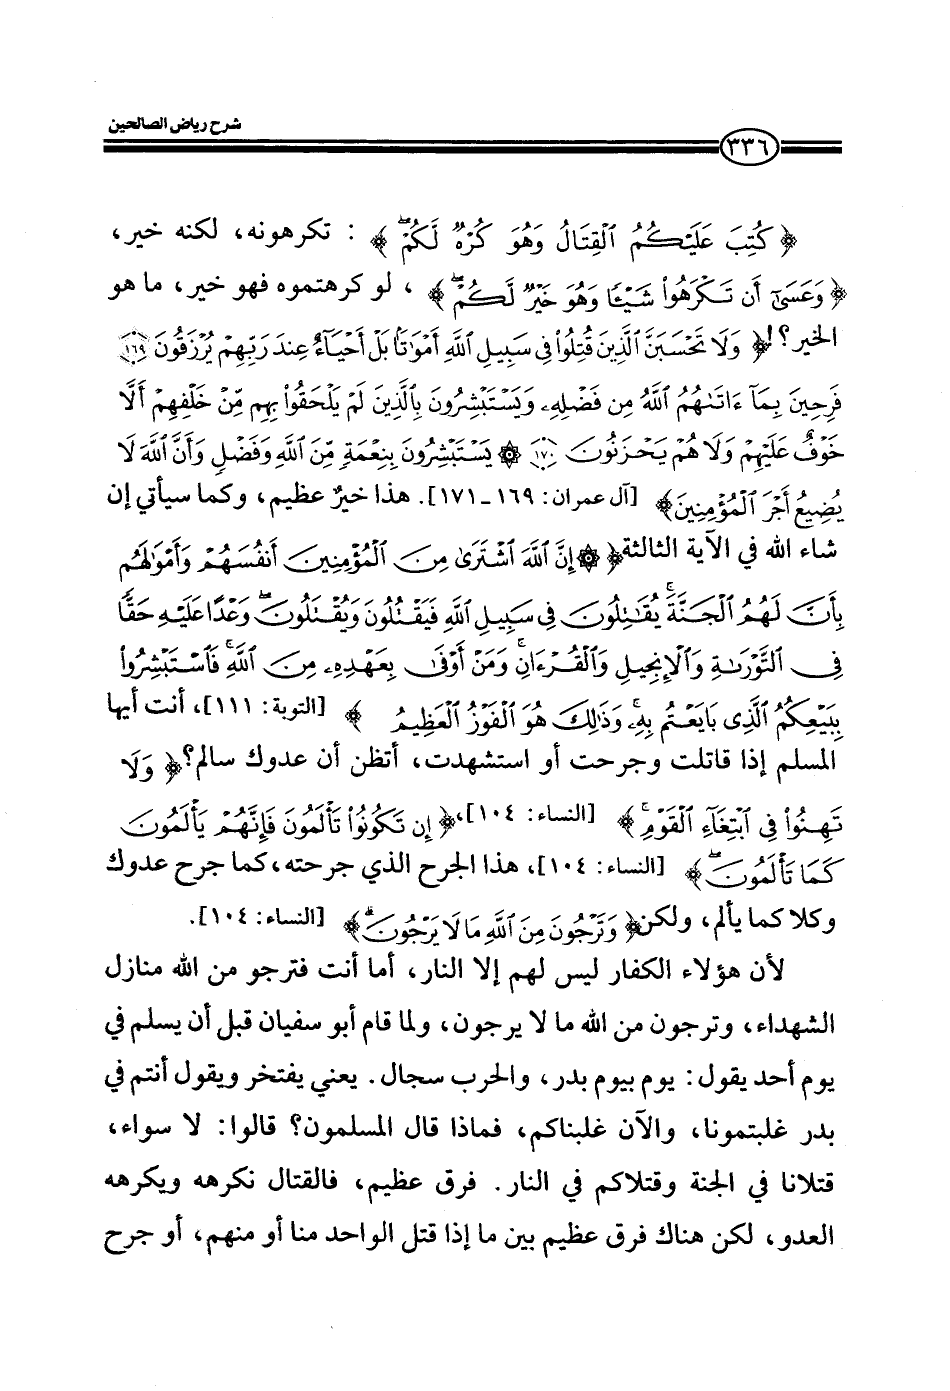 شرح رياض الصالحين
٣٣٦
﴿ كُتِبَ عَلَيْكُمُ الْقِتَالُ وَهُوَ كُرْهٌ لَّكُمْ ۖ ﴾ : تكرهونه، لكنه خير،
﴿ وَعَسَىٰ أَن تَكْرَهُوا شَيْئًا وَهُوَ خَيْرٌ لَّكُمْ ۖ ﴾ ، لو كرهتموه فهو خير، ما هو
الخير؟! ﴿ وَلَا تَحْسَبَنَّ الَّذِينَ قُتِلُوا فِي سَبِيلِ اللَّهِ أَمْوَاتًا بَلْ أَحْيَاءٌ عِندَ رَبِّهِمْ يُرْزَقُونَ ١٦٩
فَرِحِينَ بِمَا ءَاتَىٰهُمُ اللَّهُ مِن فَضْلِهِ وَيَسْتَبْشِرُونَ بِالَّذِينَ لَمْ يَلْحَقُوا بِهِم مِّنْ خَلْفِهِمْ أَلَّا
خَوْفٌ عَلَيْهِمْ وَلَا هُمْ يَحْزَنُونَ ١٧٠ ۞ يَسْتَبْشِرُونَ بِنِعْمَةٍ مِّنَ اللَّهِ وَفَضْلٍ وَأَنَّ اللَّهَ لَا
يُضِيعُ أَجْرَ الْمُؤْمِنِينَ ﴾ [آل عمران: ١٦٩ـ١٧١]. هذا خيرٌ عظيم، وكما سيأتي إن
شاء الله في الآية الثالثة ﴿ ۞ إِنَّ اللَّهَ اشْتَرَىٰ مِنَ الْمُؤْمِنِينَ أَنفُسَهُمْ وَأَمْوَالَهُم
بِأَنَّ لَهُمُ الْجَنَّةَ ۚ يُقَاتِلُونَ فِي سَبِيلِ اللَّهِ فَيَقْتُلُونَ وَيُقْتَلُونَ ۖ وَعْدًا عَلَيْهِ حَقًّا
فِي التَّوْرَىٰةِ وَالْإِنجِيلِ وَالْقُرْءَانِ ۚ وَمَنْ أَوْفَىٰ بِعَهْدِهِ مِنَ اللَّهِ ۚ فَاسْتَبْشِرُوا
بِبَيْعِكُمُ الَّذِي بَايَعْتُم بِهِ ۚ وَذَٰلِكَ هُوَ الْفَوْزُ الْعَظِيمُ ﴾ [التوبة: ١١١]، أنت أيها
المسلم إذا قاتلت وجرحت أو استشهدت، أتظن أن عدوك سالم؟ ﴿ وَلَا
تَهِنُوا فِي ابْتِغَاءِ الْقَوْمِ ۖ ﴾ [النساء: ١٠٤]، ﴿ إِن تَكُونُوا تَأْلَمُونَ فَإِنَّهُمْ يَأْلَمُونَ
كَمَا تَأْلَمُونَ ۖ ﴾ [النساء: ١٠٤]، هذا الجرح الذي جرحته، كما جرح عدوك
وكلا كما يألم، ولكن ﴿ وَتَرْجُونَ مِنَ اللَّهِ مَا لَا يَرْجُونَ ۗ ﴾ [النساء: ١٠٤].
لأن هؤلاء الكفار ليس لهم إلا النار، أما أنت فترجو من الله منازل
الشهداء، وترجون من الله ما لا يرجون، ولما قام أبو سفيان قبل أن يسلم في
يوم أحد يقول: يوم بيوم بدر، والحرب سجال. يعني يفتخر ويقول أنتم في
بدر غلبتمونا، والآن غلبناكم، فماذا قال المسلمون؟ قالوا: لا سواء،
قتلانا في الجنة وقتلاكم في النار. فرق عظيم، فالقتال نكرهه ويكرهه
العدو، لكن هناك فرق عظيم بين ما إذا قتل الواحد منا أو منهم، أو جرح